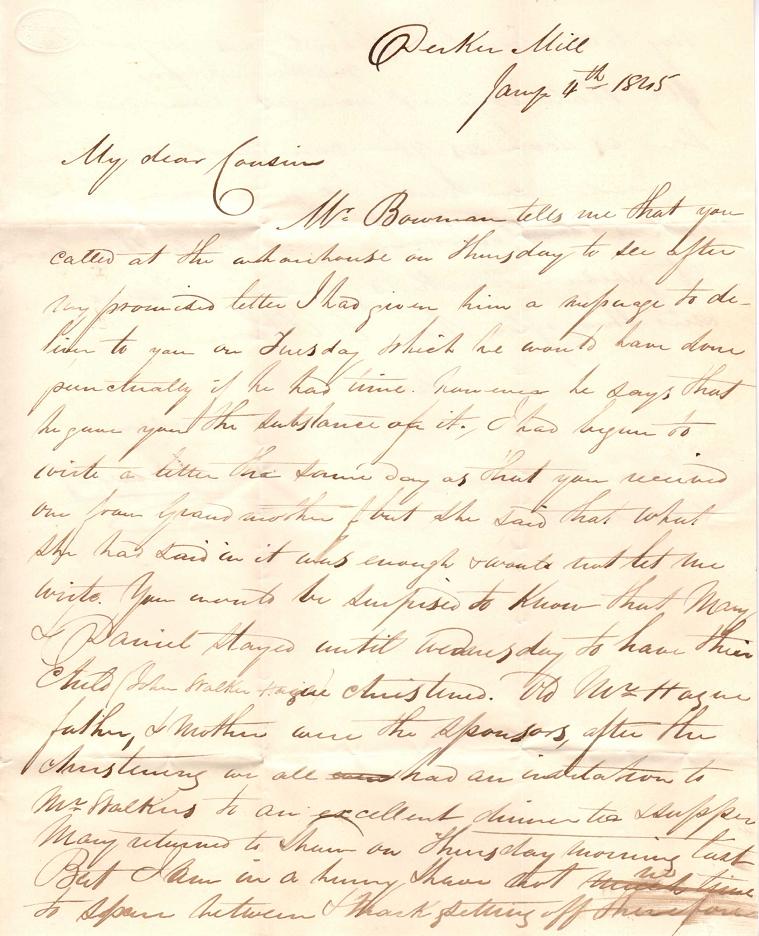 Derker Mill
Jany 4th 1845
My dear Cousin
Mr Bowman tells me that you
called at the wharehouse on Thursday to see after
my promised letter I had given him a message to de-
liver to you on Tuesday which he would have done
punctually if he had time. however he says that
he gave you the substance of it. I had begun to
write a letter the same day as that you received
one from Grandmother but she said that what
she had said in it was enough & would not let me
write. You would be surprised to know that Mary
& Daniel stayed until Wednesday to have their
Child (John Walker Hague) christened. Old Mr Hague
father, & Mother were the sponsors, after the
christening we all had an invitation to
Mr Walkers to an excellent dinner tea & supper
Mary returned to Shaw on Thursday morning last
But I am in a hurry I have not much time
to spare between & Mark setting off therefore